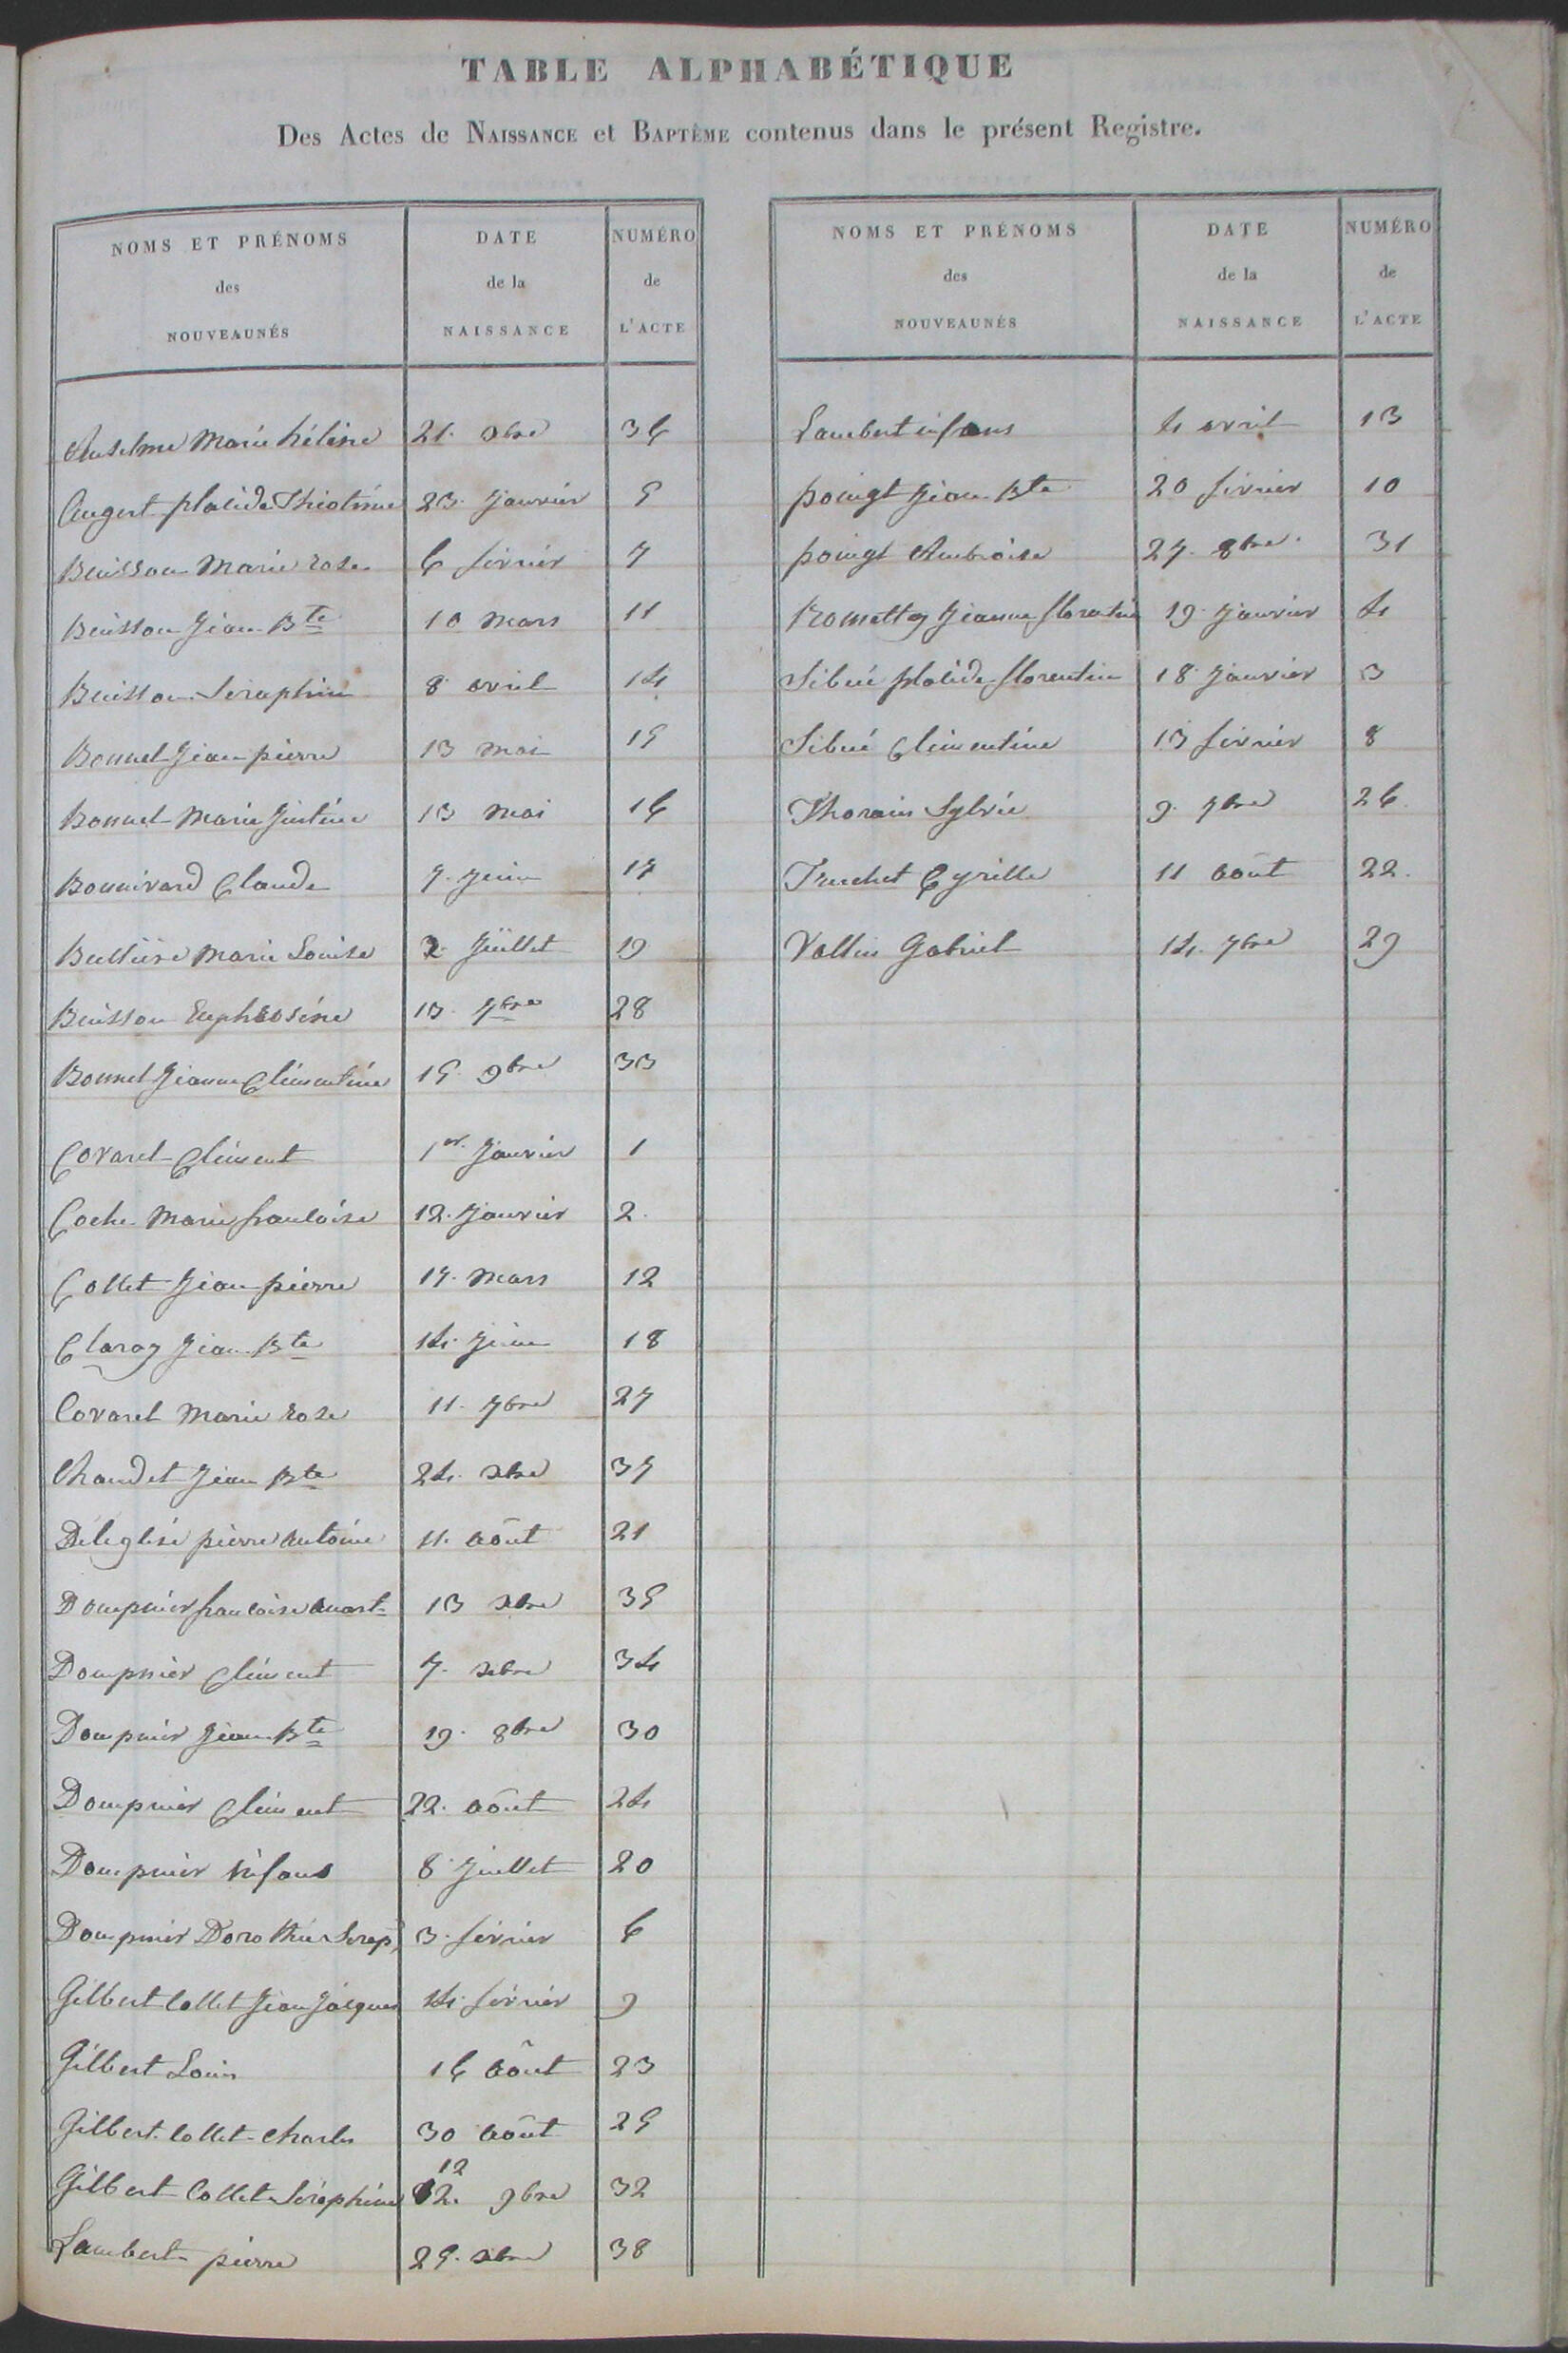 TABLE ALPHABÉTIQUE
Des Actes de NAISSANCE et BAPTÊME contenus dans le présent Registre.
NOMS ET PRÉNOMS des NOUVEAUNÉS | DATE de la NAISSANCE | NUMÉRO de L'ACTE
Anselme Marie hélène 21. xbre 36
Augert placide Théotime 23. Janvier 5
Buisson Marie rose 6 février 7
Buisson Jean Bte 10 mars 11
Buisson Séraphin 8 avril 14
Bonnel Jean pierre 13 mai 15
Bonnel Marie Justine 13 mai 16
Bonnivard Claude 7. Juin 17
Marie Louise 2. Juillet 19
Buisson Euphrosine 13. 7bre 28
Bonnel Jeanne Clémentine 15. 9bre 33
Covarel Clément 1er. Janvier 1
Coche Marie francoise 12. Janvier 2.
Collet Jean pierre 17. Mars 12
Claray Jean Bte 14. Juin 18
Covarel Marie rose 11. 7bre 27
Chaudet Jean Bte 24. xbre 37
Déléglise pierre antoine 11. août 21
Dompnier francoise anast= 13 xbre 35
Dompnier Clément 7. xbre 34
Dompnier Jean Bte 19. 8bre 30
Dompnier Clément 22. août 24
Dompnier infans 8 Juillet 20
Dompnier Dorothée Serap. 3. février 6
Gilbert Collet Jean Jacques 14. février 9
Gilbert Louis 16 août 23
Gilbert Collet Charles 30 août 25
12
Gilbert Collet Séraphine 12. 9bre 32
Lambert pierre 25. xbre 38
NOMS ET PRÉNOMS des NOUVEAUNÉS | DATE de la NAISSANCE | NUMÉRO de L'ACTE
Lambert infans 4 avril 13
poingt Jean Bte 20 février 10
poingt Ambroise 27. 8bre. 31
Jeanne florentine 19. Janvier 4
Sibué placide florentin 18 Janvier 3
Sibué Clémentine 13 février 8
Thorain Sylvie 9. 7bre 26.
Truchet Cyrille 11 août 22.
Vallin Gabriel 14. 7bre 29